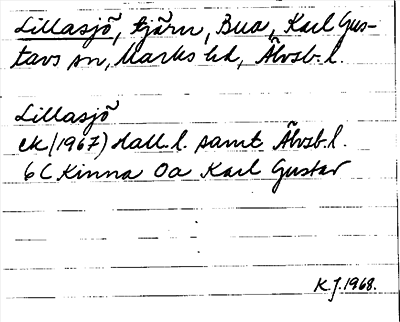 Lillasjö, tjärn, Bua, Karl Gus-
tavs sn, Marks hd, Älvsb. l.
Lillasjö
ek (1967) Hall. l. samt Älvsb. l.
6 C Kinna 0a Karl Gustav
K.J. 1968.